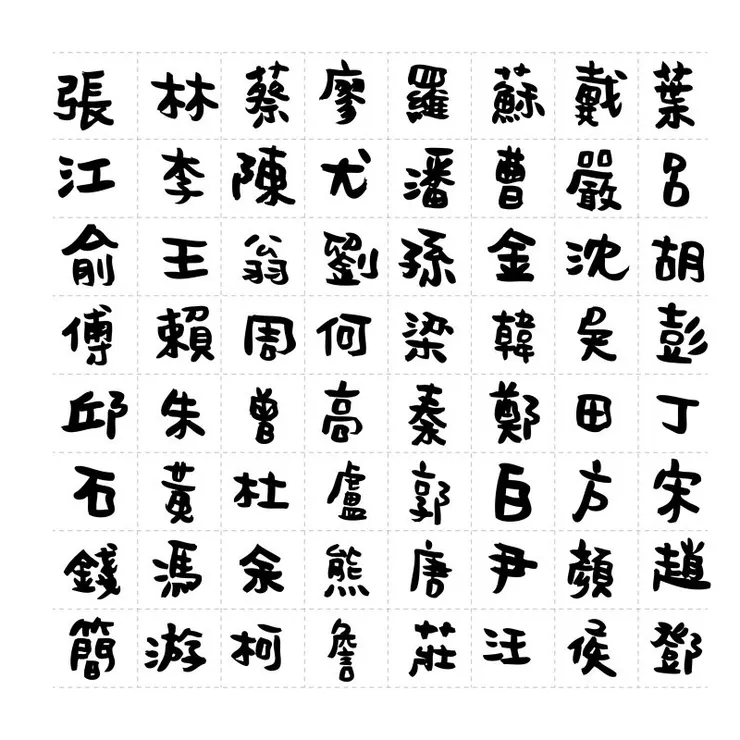 張 林 蔡 廖 羅 蘇 戴 葉
江 李 陳 尤 潘 曹 嚴 呂
俞 王 翁 劉 孫 金 沈 胡
傅 賴 周 何 梁 韓 吳 彭
邱 朱 曾 高 秦 鄭 田 丁
石 黃 杜 盧 郭 白 方 宋
錢 馮 余 熊 唐 尹 顏 趙
簡 游 柯 詹 莊 汪 侯 鄧